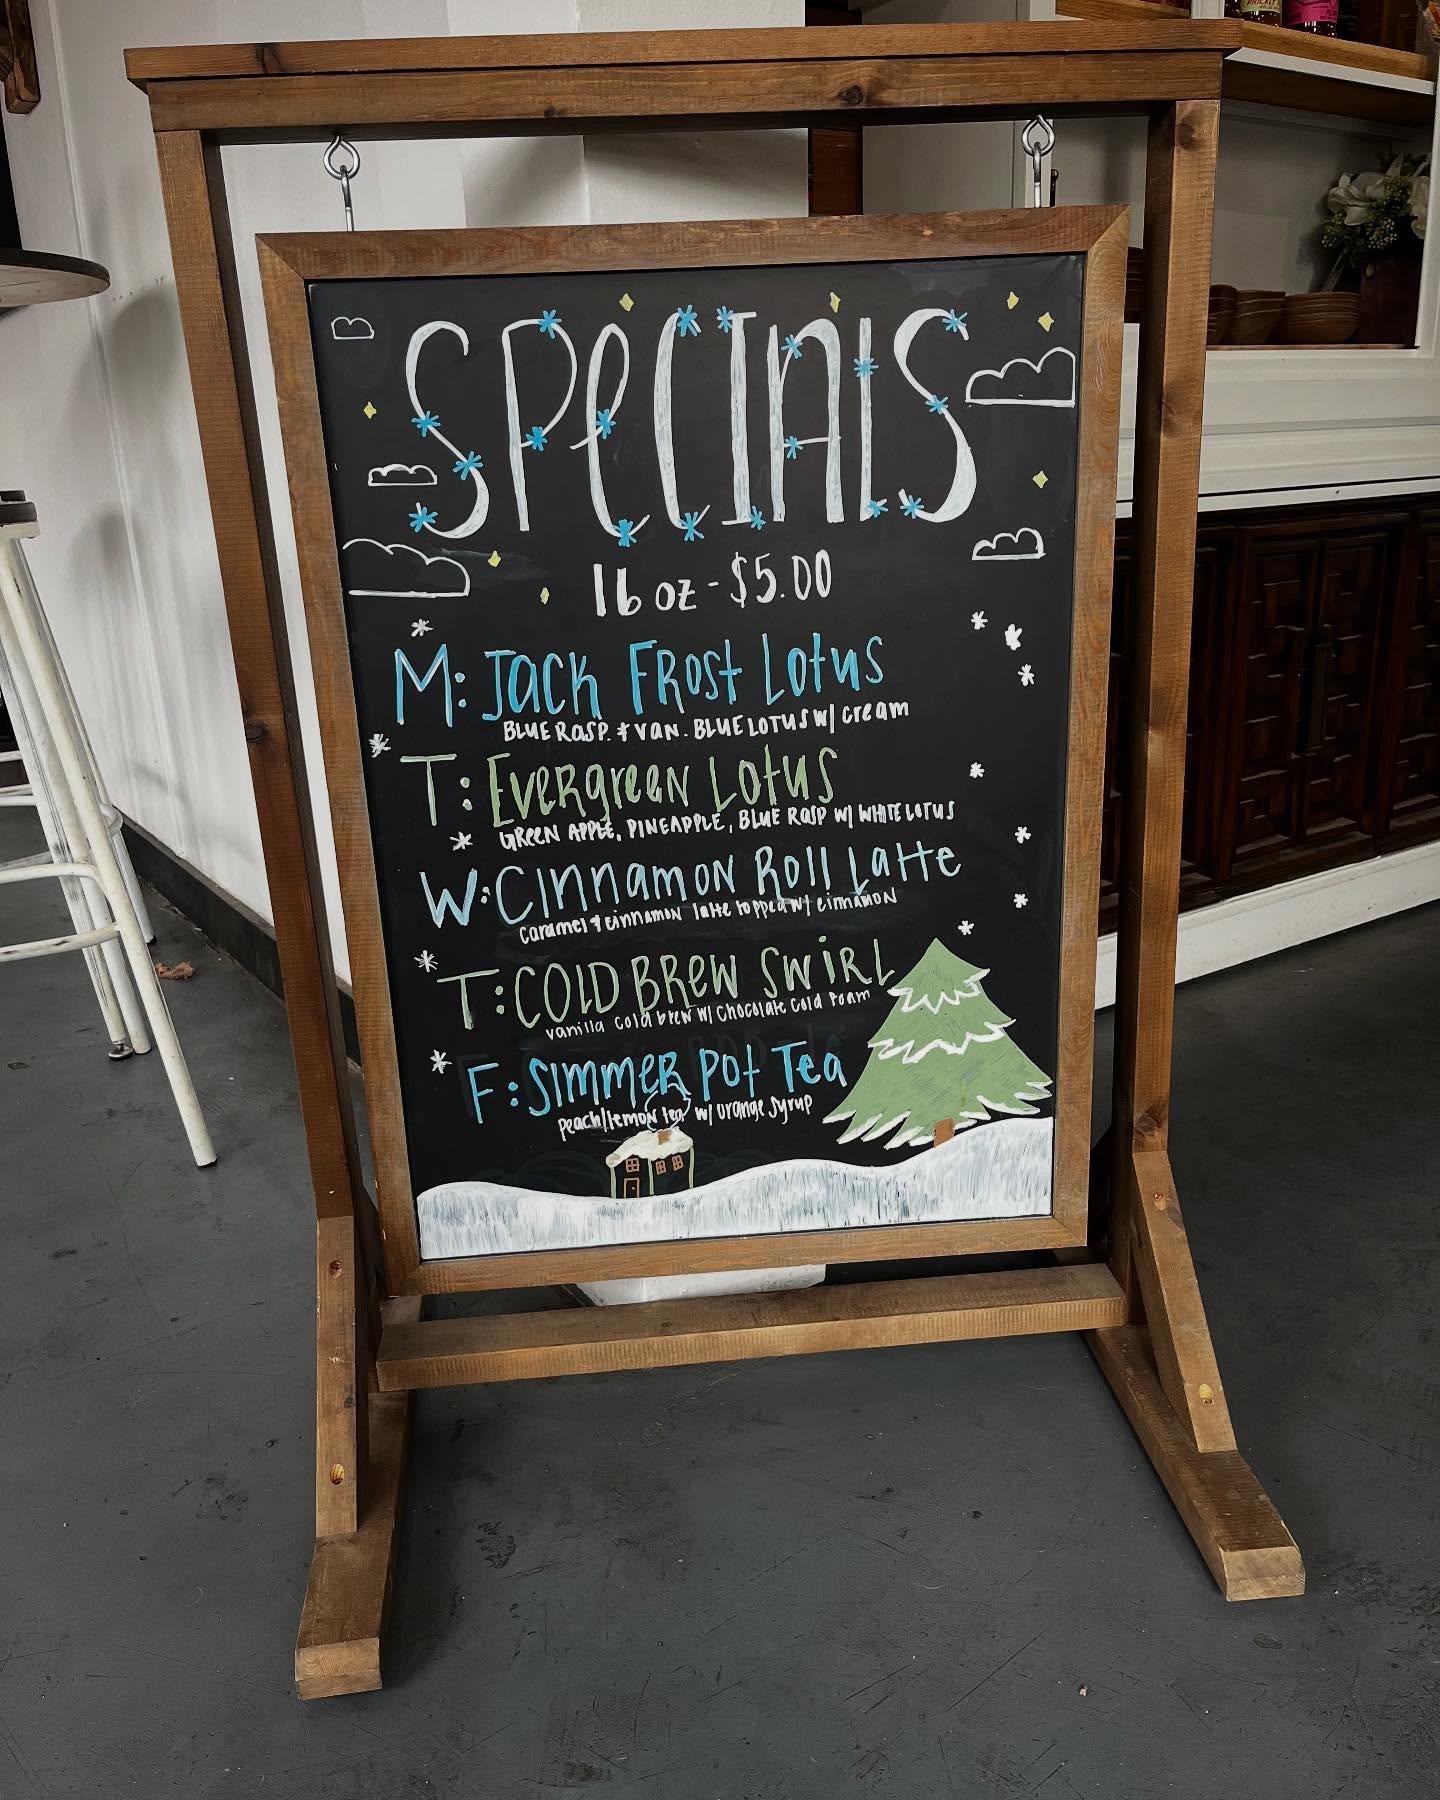 SPeCIAlS
16 oz - $5.00
M: JacK FRost Lotus
BLUE RaSP. + Van. BLUE LOTUS W/ cream
T: EveRgreen Lotus
GREEN APPLE, PINEAPPLE, BLUE RaSP W/ WHITE LOTUS
W: CInnamon Roll Latte
caramel + cinnamon latte topped w/ cinnamon
T: COLD BReW SWiRL
vanilla cold brew w/ chocolate cold foam
F: SImmeR Pot Tea
peach/lemon tea w/ orange syrup
PRICKLY